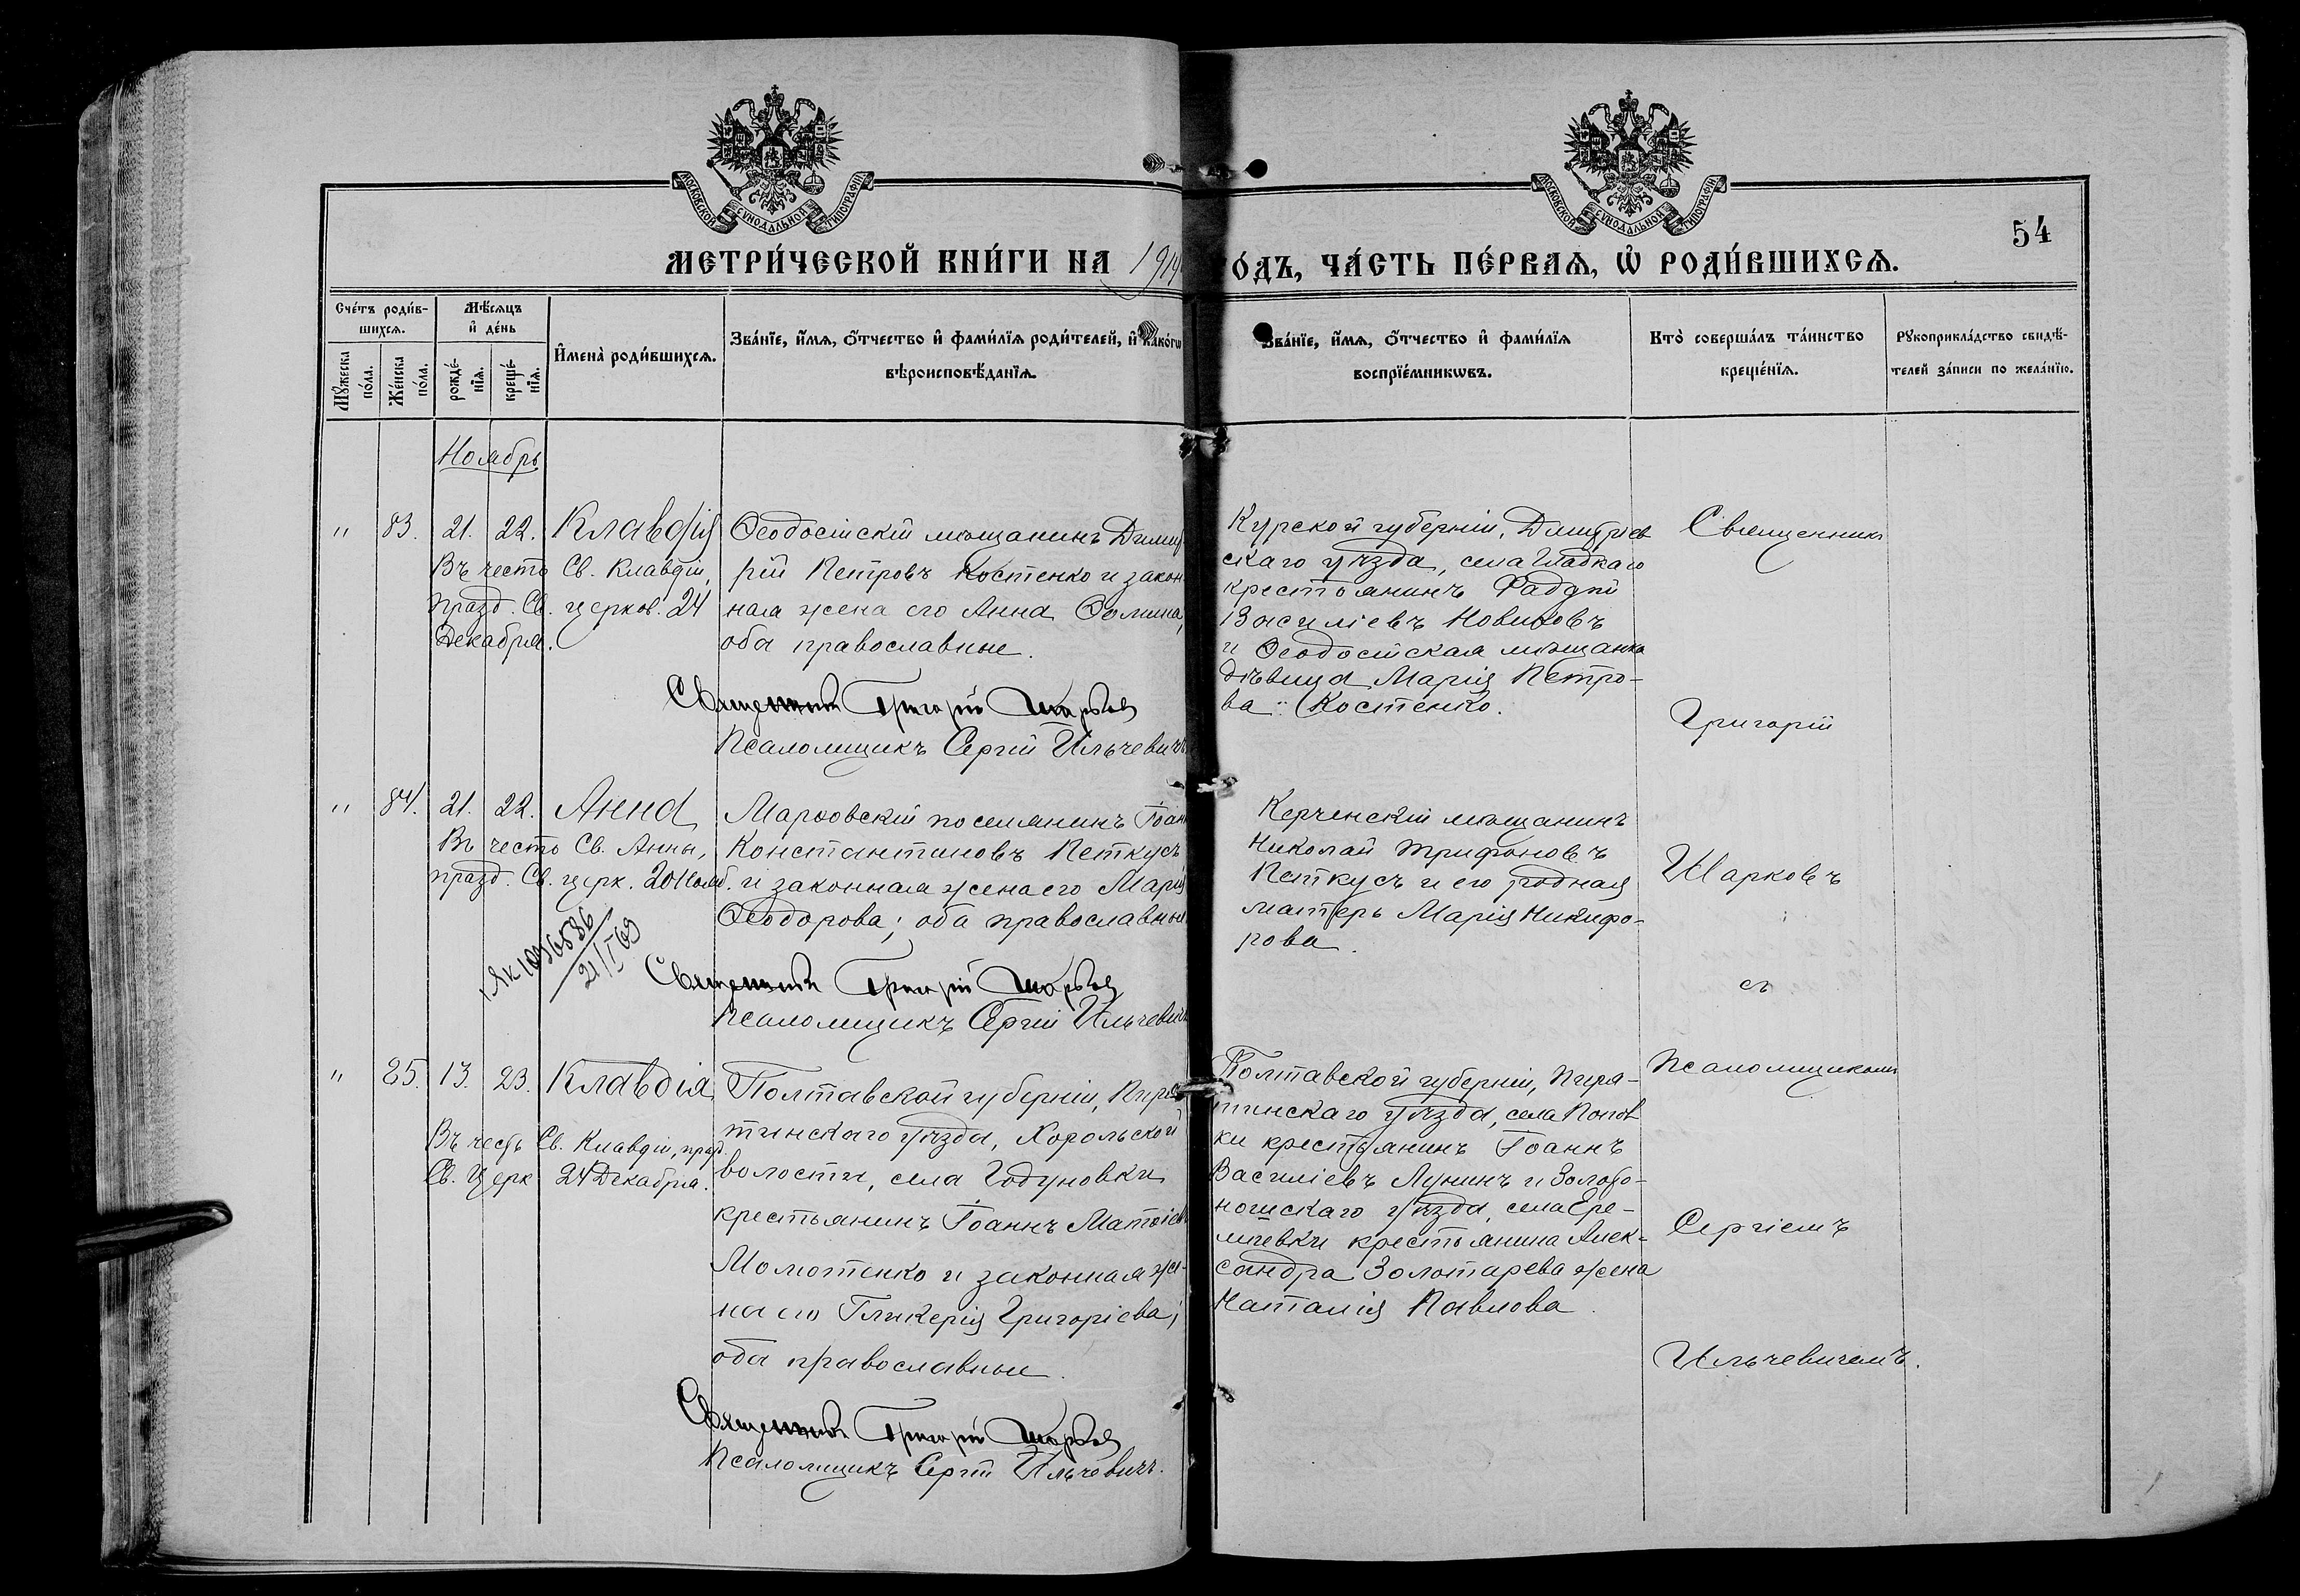 МОСКОВСКОЙ СѴНОДАЛЬНОЙ ТИПОГРАФІИ
МОСКОВСКОЙ СѴНОДАЛЬНОЙ ТИПОГРАФІИ
54
МЕТРИ́ЧЕСКОЙ КНИ́ГИ НА 1914
О́ДЪ, ЧА́СТЬ ПЕ́РВАѦ, Ѡ҆ РОДИ́ВШИХСѦ.
Сче́тъ роди́в-
шихсѧ.
Мꙋ́жеска по́ла.
Же́нска по́ла.
Мѣ́сѧцъ
и҆ де́нь
рожде́-
нїѧ.
креще́-
нїѧ.
И҆мена̀ роди́вшихсѧ.
Зва́нїе, и҆́мѧ, ѻ҆́тчество и҆ фами́лїѧ роди́телей, и҆ како́гѡ
вѣроисповѣ́данїѧ.
Зва́нїе, и҆́мѧ, ѻ҆́тчество и҆ фами́лїѧ
воспрїе́мникѡвъ.
Кто̀ соверша́лъ та́инство
креще́нїѧ.
Рꙋкоприкла́дство свидѣ́-
телей за́писи по жела́нїю.
Ноябрь
" 83. 21. 22. Клавдія
Въ честь Св. Клавдіи,
празд. Св. церков. 24
Декабря.
Ѳеодосійскій мѣщанинъ Димит
рій Петровъ Костенко и закон
ная жена его Анна Ѳомина,
оба православные.
Священникъ Григорій Шарковъ
Псаломщикъ Сергій Ильчевичъ
Курской губерніи, Дмитріев
скаго уѣзда, села Гладкаго
крестьянинъ Фаддѣй
Василіевъ Новиковъ
и Ѳеодосійская мѣщанка
дѣвица Марія Петро-
ва Костенко.
" 84. 21. 22. Анна
Въ честь Св. Анны,
празд. Св. церк. 20 Нояб.
1 ЯК 1096586
21/I 69
Марѳовскій поселянинъ Іоан
Константиновъ Петкусъ
и законная жена его Марія
Ѳеодорова; оба православные
Священникъ Григорій Шарковъ
Псаломщикъ Сергій Ильчевичъ
Керченскій мѣщанинъ
Николай Трифоновъ
Петкусъ и его родная
матерь Марія Никифо-
рова.
" 85. 13. 23. Клавдія
Въ честь Св. Клавдіи, празд.
Св. Церк 24 Декабря.
Полтавской губерніи, Пиря
тинскаго уѣзда, Хорольской
волости, села Годуновки
крестьянинъ Іоаннъ Матѳіев
Момотенко и законная же-
на его Гликерія Григоріева;
оба православные.
Священникъ Григорій Шарковъ
Псаломщикъ Сергій Ильчевичъ.
Полтавской губерніи, Пиря-
тинскаго уѣзда, села Попов
ки крестьянинъ Іоаннъ
Василіевъ Лунинъ и Золото-
ношскаго уѣзда, села Ере-
мѣевки крестьянина Алек-
сандра Золотарева жена
Наталія Павлова.
Священникъ
Григорій
Шарковъ
съ
Псаломщикомъ
Сергіемъ
Ильчевичемъ.